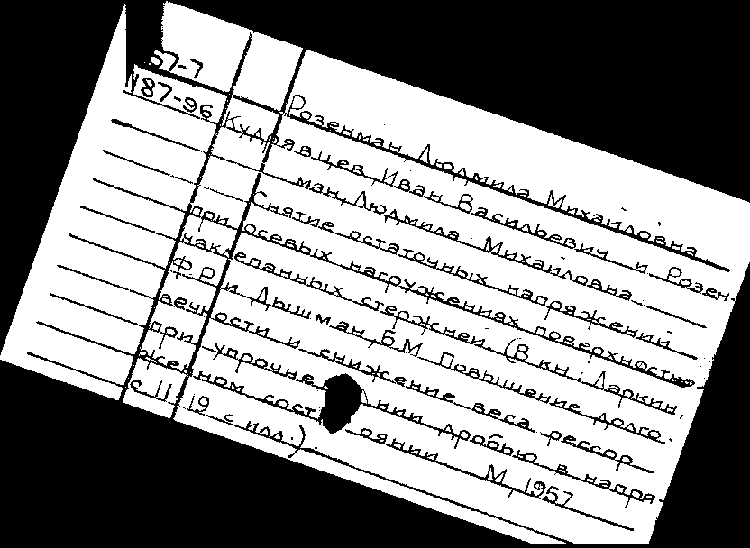 57-7
N87-96
Розенман, Людмила Михайловна
Кудрявцев, Иван Васильевич и Розен-
ман, Людмила Михайловна.
Снятие остаточных напряжений
при осевых нагружениях поверхностно
наклепанных стержней. (В кн.: Ларкин,
Ф.Р. и Дышман, Б.М. Повышение долго-
вечности и снижение веса рессор
при упрочнении дробью в напря-
женном состоянии. М, 1957
с 11-19 с илл.)